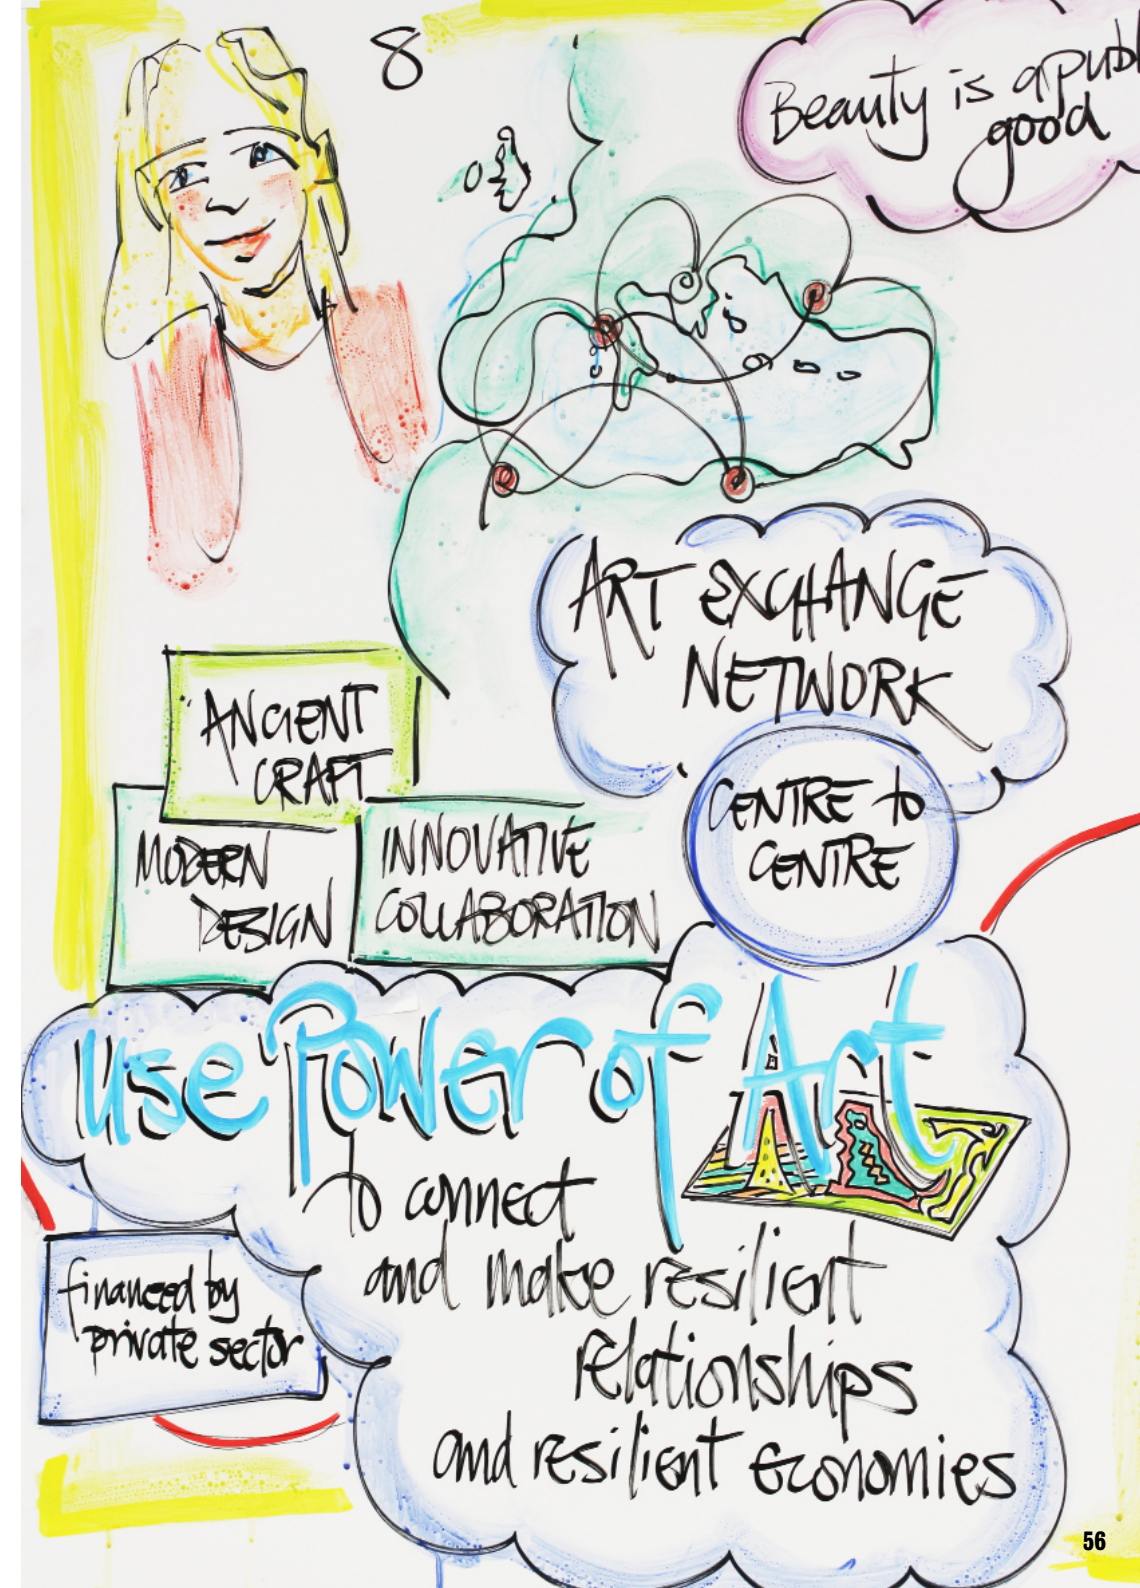 8
Beauty is a publ
good
ART EXCHANGE
NETWORK
CENTRE to
CENTRE
ANCIENT
CRAFT
MODERN
DESIGN
INNOVATIVE
COLLABORATION
use Power of Art
to connect
and make resilient
relationships
and resilient economies
financed by
private sector
56